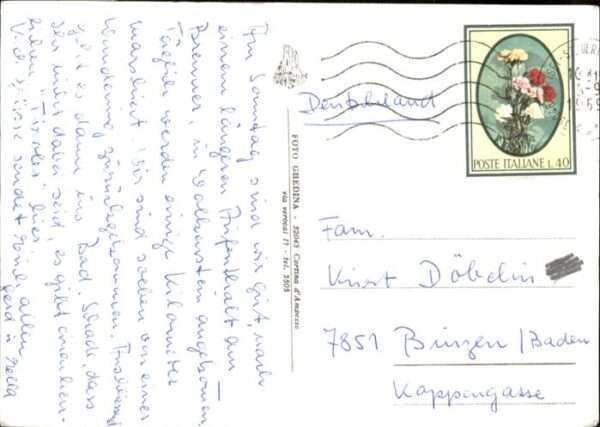 Am Sonntag sind wir gut, nach
einem längeren Aufenthalt am
Brenner, in Wolkenstein angekommen.
Täglich werden einige Kilometer
marschiert. Wir sind soeben von einer
Wanderung zurückgekommen. Anschließend
geht es dann ins Bad. Schade, dass
Ihr nicht dabei seid, es gibt einen
hier.
Viele Grüsse sendet Euch allen
Gerd u. Hella
FOTO GHEDINA - 32043 Cortina d'Ampezzo
via verocai 11 - tel. 3505
Deutschland
POSTE ITALIANE L. 40
Fam.
Kurt Döbelin
7851 Binzen/Baden
Kappengasse